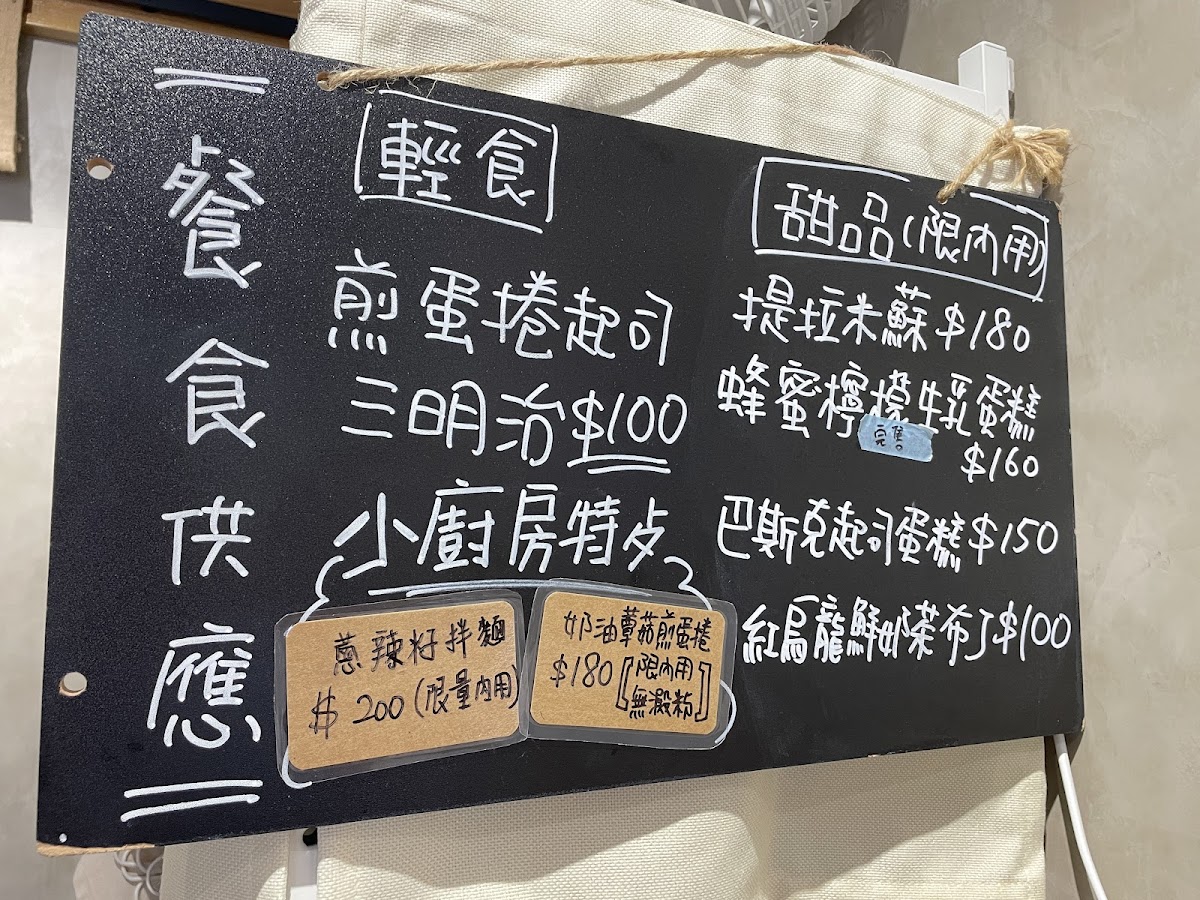 餐食供應
輕食
煎蛋捲起司
三明治$100
小廚房特歺
蔥辣籽拌麵
$200(限量內用)
奶油蕈菇煎蛋捲
$180[限內用
無澱粉]
甜品(限內用)
提拉米蘇$180
蜂蜜檸檬牛乳蛋糕
完售。
$160
巴斯克起司蛋糕$150
紅烏龍鮮奶茶布丁$100